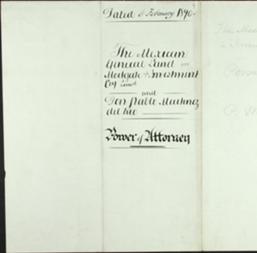 Dated 6 February 1890
The Mexican
General Land
Mortgage & Investment
Coy Limd
and
Don Pablo Martinez
del Rio
Power of Attorney